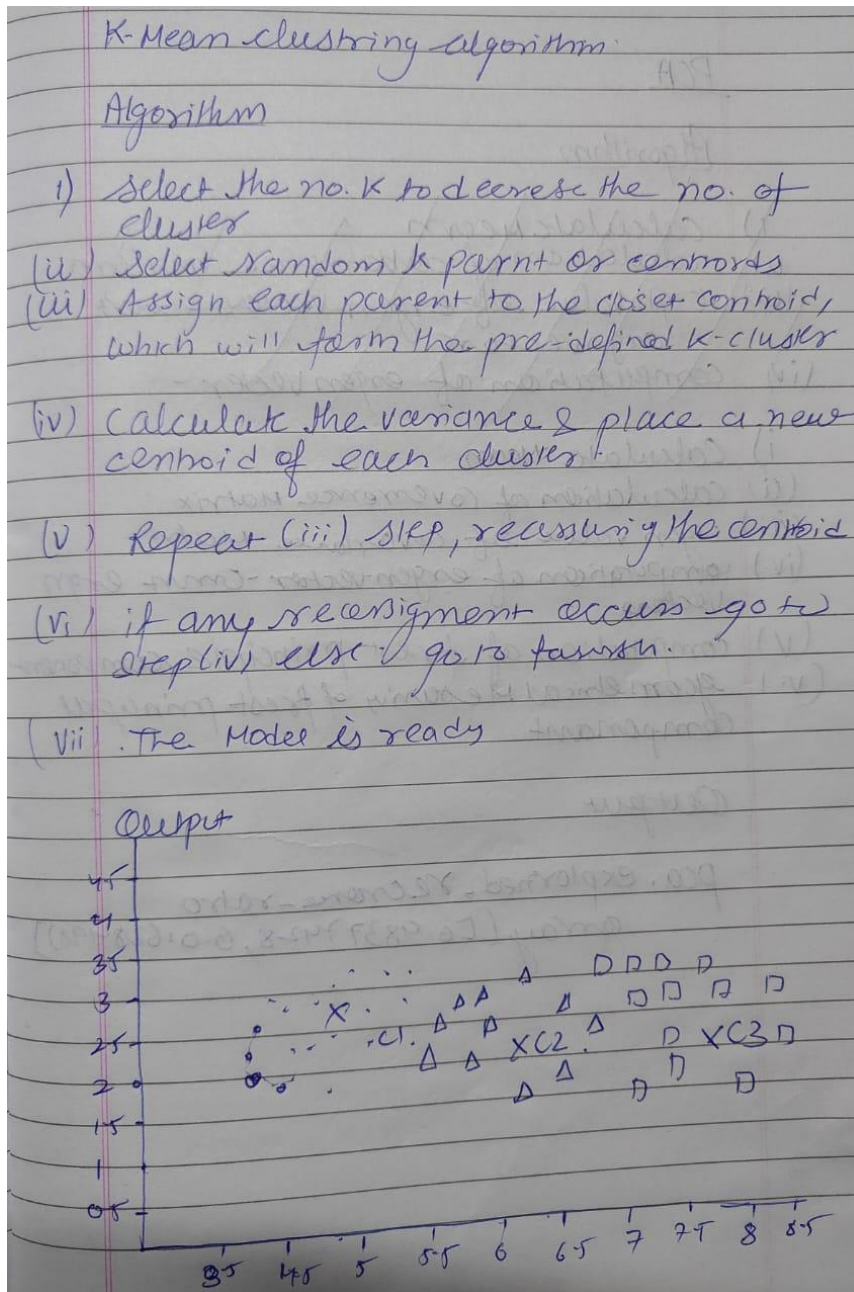 K-Mean clustring algorithm.
Algorithm
i) Select the no. K to decrese the no. of
cluster
(ii) Select random k parnt or centrords
(iii) Assign each parent to the closet centroid,
which will form the pre-defined K-cluster
(iv) Calculate the variance & place a new
centroid of each cluster.
(v) Repeat (iii) step, reassuring the centroid
(vi) if any reassigment occurs go to
step (iv) else go to
(vii) The Model is ready
Output
4.5
4
3.5
3
X
2.5
C1
XC2
XC3
2
1.5
1
0.5
3.5 4.5 5 5.5 6 6.5 7 7.5 8 8.5